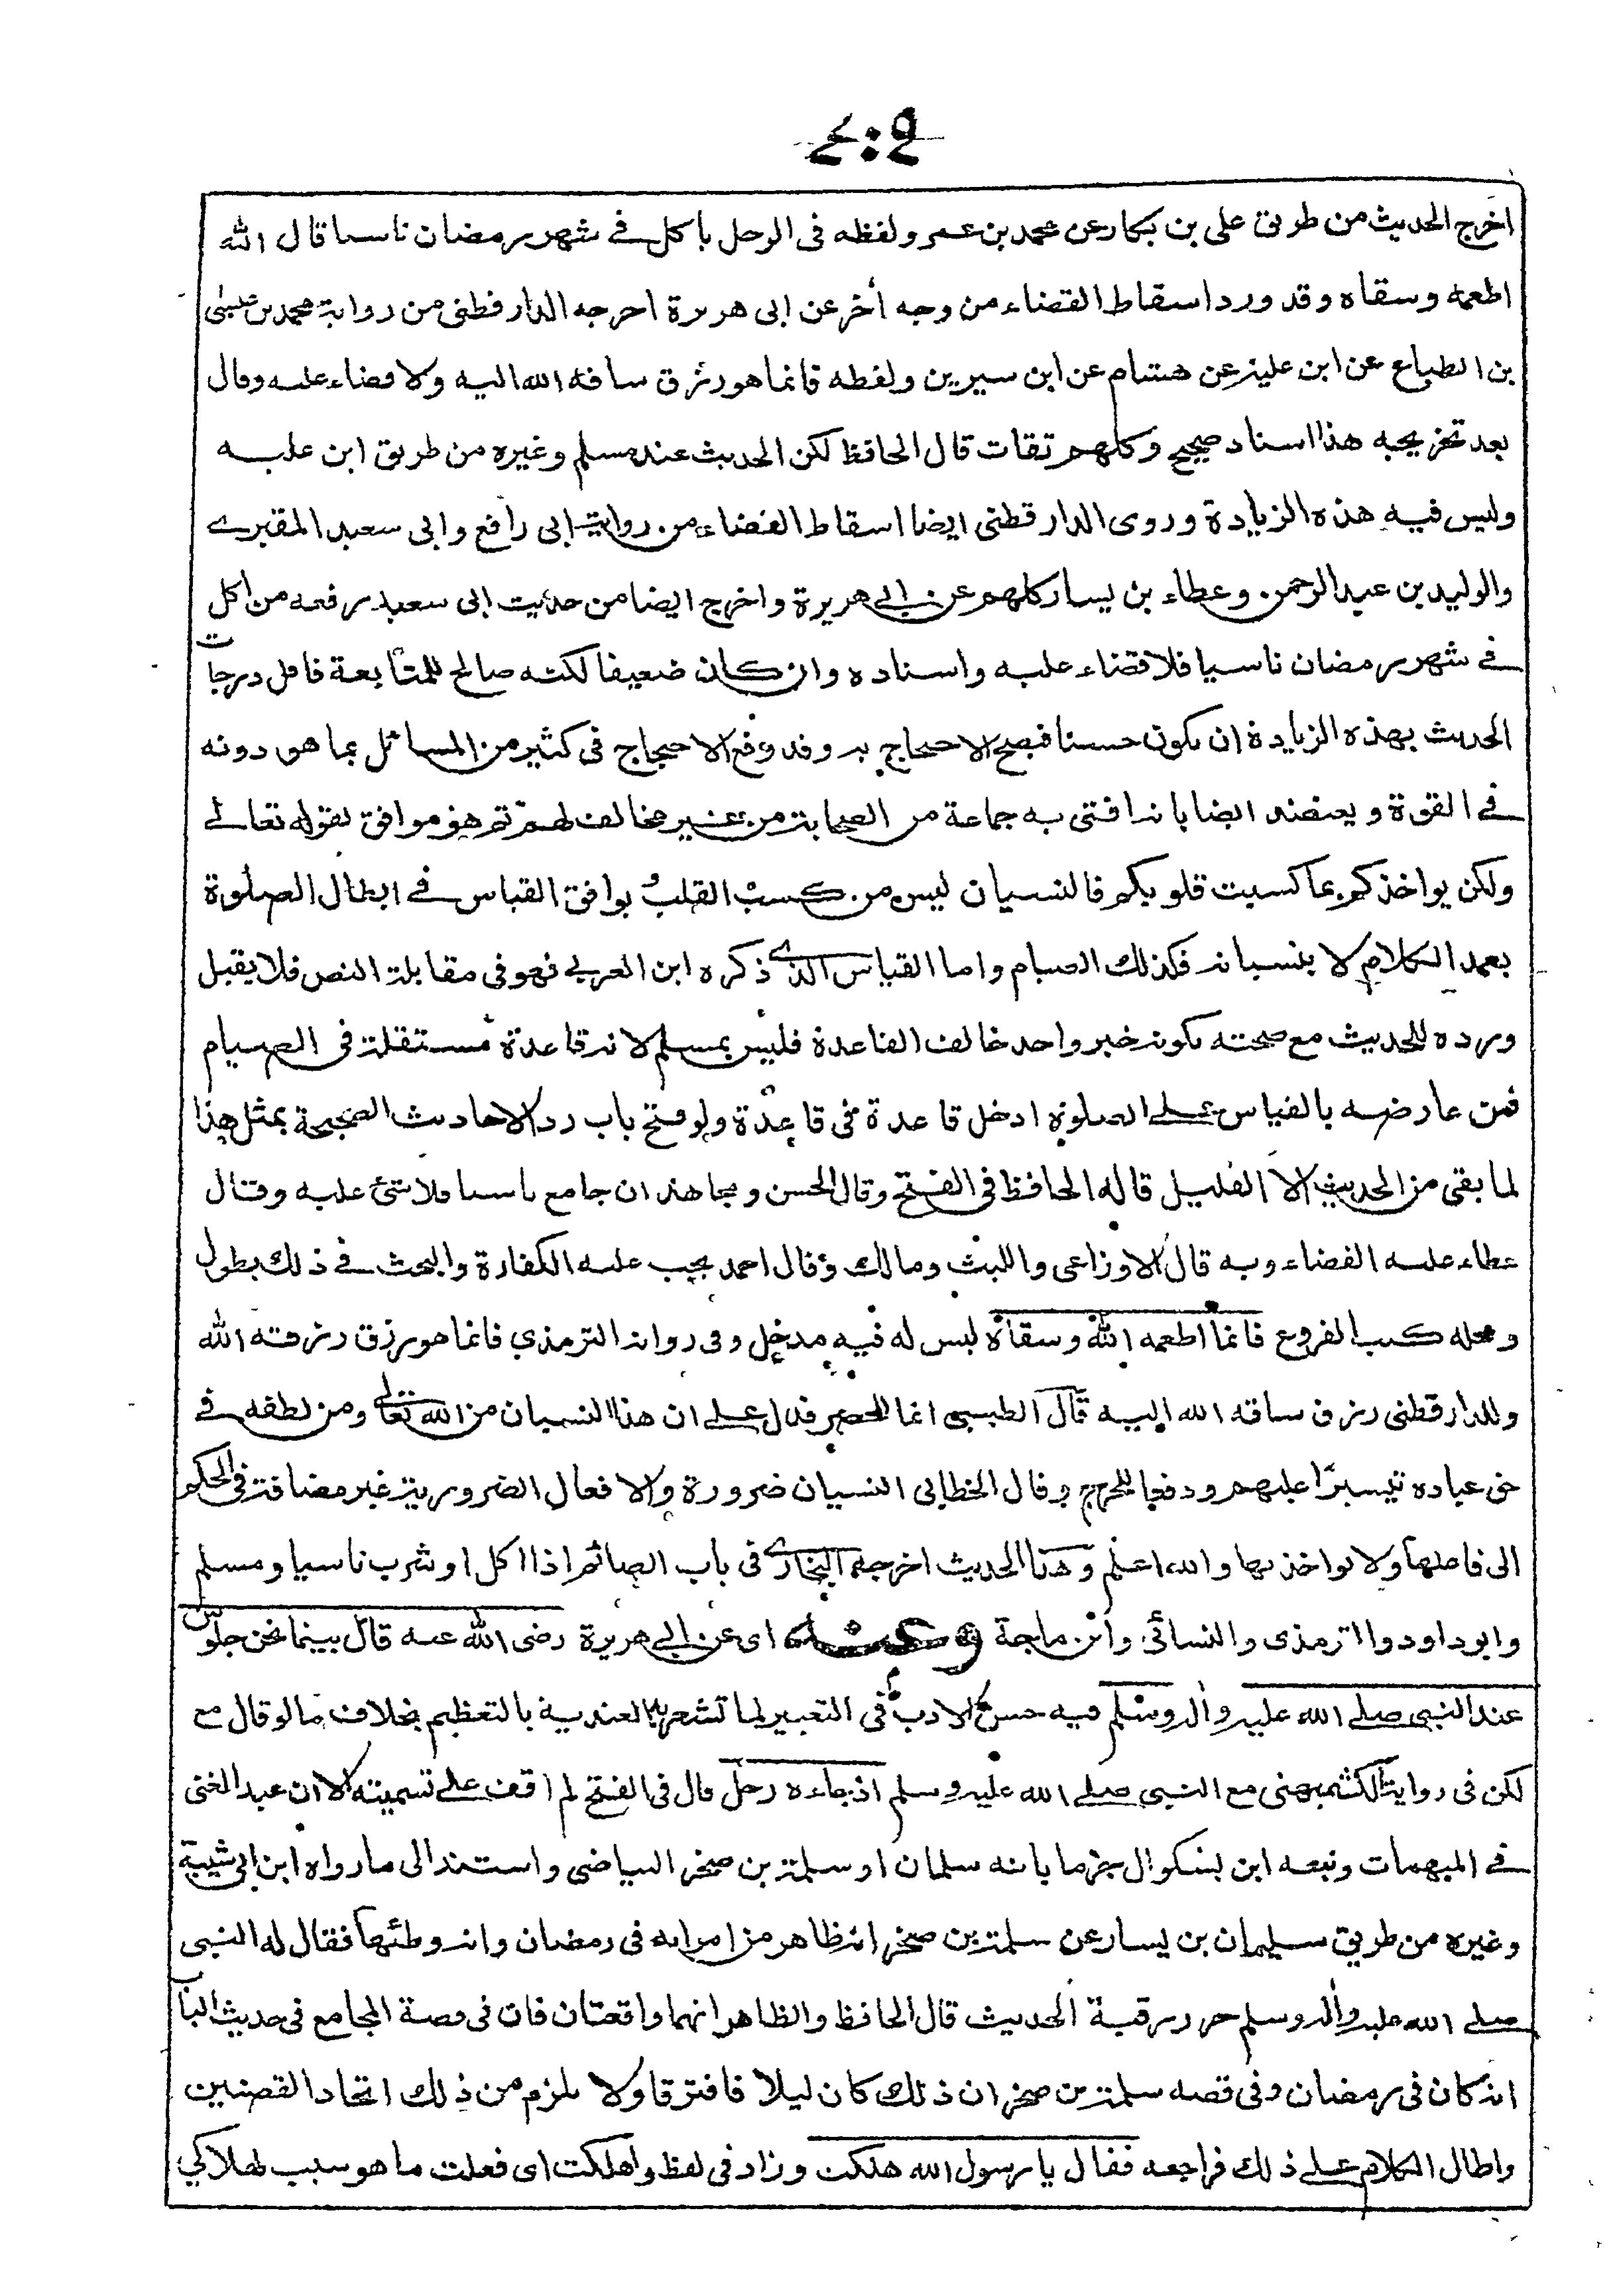 ٤٠٩
اخرج الحديث من طريق على بن بكار عن محمد بن عمر ولفظه فى الرجل ياكل فى شهر رمضان ناسيا قال الله
اطعمه وسقاه وقد ورد اسقاط القضاء من وجه أخر عن ابى هريرة اخرجه الدارقطنى من رواية محمد بن عيسى
بن الطباع عن ابن علية عن هشام عن ابن سيرين ولفظه فانما هو رزق ساقه الله اليه ولا قضاء عليه وقال
بعد تخريجه هذا اسناد صحيح وكلهم ثقات قال الحافظ لكن الحديث عند مسلم وغيره من طريق ابن عليه
وليس فيه هذه الزيادة وروى الدارقطنى ايضا اسقاط القضاء من رواية ابى رافع وابى سعيد المقبرى
والوليد بن عبد الرحمن وعطاء بن يسار كلهم عن ابى هريرة واخرج ايضا من حديث ابى سعيد رفعه من اكل
فى شهر رمضان ناسيا فلا قضاء عليه واسناده وان كان ضعيفا لكنه صالح للمتابعة فاقل درجات
الحديث بهذه الزيادة ان يكون حسنا فيصح الاحتجاج به وقد وقع الاحتجاج فى كثير من المسائل بما هو دونه
فى القوة ويعتضد ايضا بانه افتى به جماعة من الصحابة من غير مخالف لهم ثم هو موافق لقوله تعالى
ولكن يواخذكم بما كسبت قلوبكم فالنسيان ليس من كسب القلب ويوافق القياس فى ابطال الصلوة
بعمد الكلام لا بنسيانه فكذلك الصيام واما القياس الذى ذكره ابن العربى فهو فى مقابلة النص فلا يقبل
ورده للحديث مع صحته بكونه خبر واحد خالف القاعدة فليس بمسلم لانه قاعدة مستقلة فى الصيام
فمن عارضه بالقياس على الصلوة ادخل قاعدة فى قاعدة ولو فتح باب رد الاحاديث الصحيحة بمثل هذا
لما بقى من الحديث الا القليل قاله الحافظ فى الفتح وقال الحسن ومجاهد ان جامع ناسيا فلا شئ عليه وقال
عطاء عليه القضاء وبه قال الاوزاعى والليث ومالك وقال احمد يجب عليه الكفارة والبحث فى ذلك يطول
ومحله كتب الفروع فانما اطعمه الله وسقاه ليس له فيه مدخل وفى رواية الترمذي فانما هو رزق رزقه الله
وللدارقطنى رزق ساقه الله اليه قال الطيبى انما للحصر فدل على ان هذا النسيان من الله تعالى ومن لطفه فى
حق عباده تيسيرًا عليهم ودفعا للحرج وقال الخطابى النسيان ضرورة والافعال الضرورية غير مضافة فى الحكم
الى فاعلها ولا يواخذ بها والله اعلم وهذا الحديث اخرجه البخارى فى باب الصائم اذا اكل او شرب ناسيا ومسلم
وابو داود والترمذى والنسائى وابن ماجة وعنه اى عن ابى هريرة رضى الله عنه قال بينما نحن جلوس
عند النبى صلى الله عليه وأله وسلم فيه حسن الادب فى التعبير لما تشعر به العندية بالتعظيم بخلاف ما لو قال مع
لكن فى رواية الكشميهنى مع النبى صلى الله عليه وسلم اذ جاءه رجل قال فى الفتح لم اقف على تسميته الا ان عبد الغنى
فى المبهمات وتبعه ابن بشكوال جزما بانه سلمان او سلمة بن صخر البياضى واستند الى ما رواه ابن ابى شيبة
وغيره من طريق سليمان بن يسار عن سلمة بن صخر انه ظاهر من امرأته فى رمضان وانه وطئها فقال له النبى
صلى الله عليه وأله وسلم حرر رقبة الحديث قال الحافظ والظاهر انهما واقعتان فان فى قصة المجامع فى حديث الباب
انه كان فى رمضان وفى قصة سلمة بن صخر ان ذلك كان ليلا فافترقا ولا يلزم من ذلك اتحاد القصتين
واطال الكلام على ذلك فراجعه فقال يا رسول الله هلكت وزاد فى لفظ واهلكت اى فعلت ما هو سبب لهلاكي